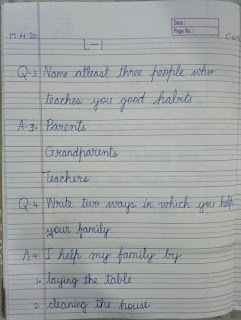 Date:
Page No.:
17-4-20
L-1
Q-3 Name atleast three people who
teaches you good habits
A-3. Parents
Grandparents
Teachers
Q-4. Write two ways in which you help
your family
A-4. I help my family by
1. laying the table
2. cleaning the house